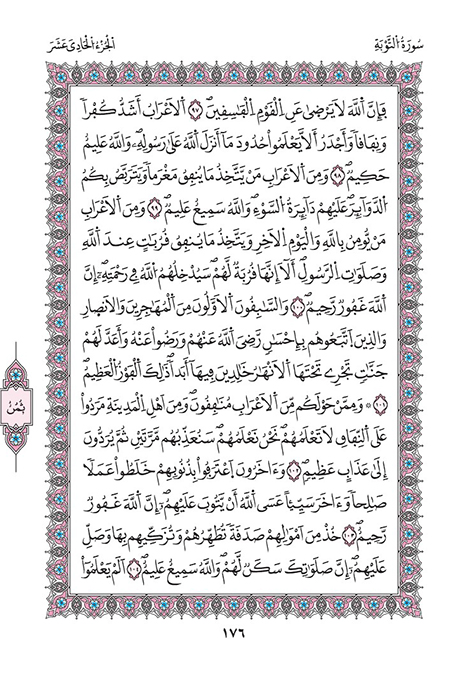 سُورَةُ التَّوْبَةِ
الجُزْءُ الحَادِي عَشَرَ
فَإِنَّ اَللَّهَ لَا يَرْضَىٰ عَنِ اِلْقَوْمِ اِلْفَٰسِقِينَۖ ٩٧ اَلَاعْرَابُ أَشَدُّ كُفْراٗ
وَنِفَاقاٗ وَأَجْدَرُ أَلَّا يَعْلَمُواْ حُدُودَ مَا أَنزَلَ اَللَّهُ عَلَىٰ رَسُولِهِۦۖ وَاللَّهُ عَلِيمٌ
حَكِيمٞۖ ٩٨ وَمِنَ اَلَاعْرَابِ مَنْ يَّتَّخِذُ مَا يُنفِقُ مَغْرَماٗ وَيَتَرَبَّصُ بِكُمُ
اُلدَّوَآئِرَۖ عَلَيْهِمْ دَآئِرَةُ اُلسَّوْءِۖ وَاللَّهُ سَمِيعٌ عَلِيمٞۖ ٩٩ وَمِنَ اَلَاعْرَابِ
مَنْ يُّومِنُ بِاللَّهِ وَالْيَوْمِ اِلَاخِرِ وَيَتَّخِذُ مَا يُنفِقُ قُرُبَٰتٍ عِندَ اَللَّهِ
وَصَلَوَٰتِ اِلرَّسُولِۖ أَلَآ إِنَّهَا قُرُبَةٞ لَّهُمْۖ سَيُدْخِلُهُمُ اُللَّهُ فِي رَحْمَتِهِۦٓۖ إِنَّ
اَللَّهَ غَفُورٞ رَّحِيمٞۖ ١٠٠ وَالسَّٰبِقُونَ اَلَاوَّلُونَ مِنَ اَلْمُهَٰجِرِينَ وَالَانصَارِ
وَالذِينَ اَتَّبَعُوهُم بِإِحْسَٰنٖ رَّضِيَ اَللَّهُ عَنْهُمْ وَرَضُواْ عَنْهُ وَأَعَدَّ لَهُمْ
جَنَّٰتٖ تَجْرِي تَحْتَهَا اَلَانْهَٰرُ خَٰلِدِينَ فِيهَآ أَبَداٗۖ ذَٰلِكَ اَلْفَوْزُ اُلْعَظِيمُۖ
١٠١ ۞ وَمِمَّنْ حَوْلَكُم مِّنَ اَلَاعْرَابِ مُنَٰفِقُونَۖ وَمِنَ اَهْلِ اِلْمَدِينَةِ مَرَدُواْ
عَلَى اَلنِّفَاقِ لَا تَعْلَمُهُمْۖ نَحْنُ نَعْلَمُهُمْۖ سَنُعَذِّبُهُم مَّرَّتَيْنِۖ ثُمَّ يُرَدُّونَ
إِلَىٰ عَذَابٍ عَظِيمٖۖ ١٠٢ وَءَاخَرُونَ اَعْتَرَفُواْ بِذُنُوبِهِمْ خَلَطُواْ عَمَلاٗ
صَٰلِحاٗ وَءَاخَرَ سَيِّئاًۖ عَسَى اَللَّهُ أَنْ يَّتُوبَ عَلَيْهِمُۥٓۖ إِنَّ اَللَّهَ غَفُورٞ
رَّحِيمٌۖ ١٠٣ خُذْ مِنَ اَمْوَٰلِهِمْ صَدَقَةٗ تُطَهِّرُهُمْ وَتُزَكِّيهِم بِهَا وَصَلِّ
عَلَيْهِمُۥٓۖ إِنَّ صَلَوَٰتِكَ سَكَنٞ لَّهُمْۖ وَاللَّهُ سَمِيعٌ عَلِيمٌۖ ١٠٤ اَلَمْ يَعْلَمُوٓاْ
ثُمُن
١٧٦